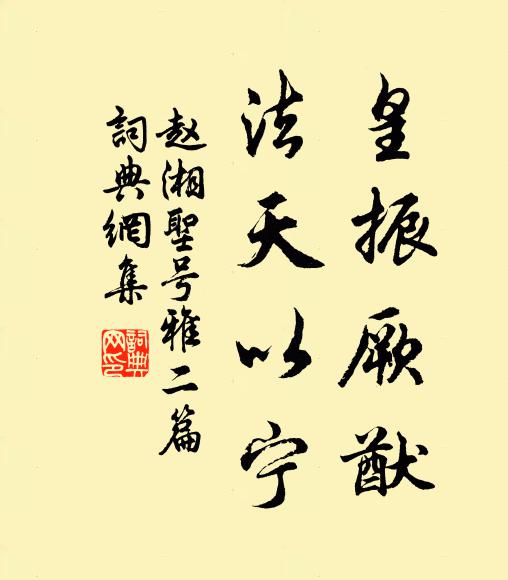 皇振厥猷
法天以宁
赵湘聖号雅二篇
詞典網集
詞典网印